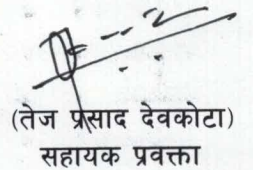 (तेज प्रसाद देवकोटा)
सहायक प्रवक्ता